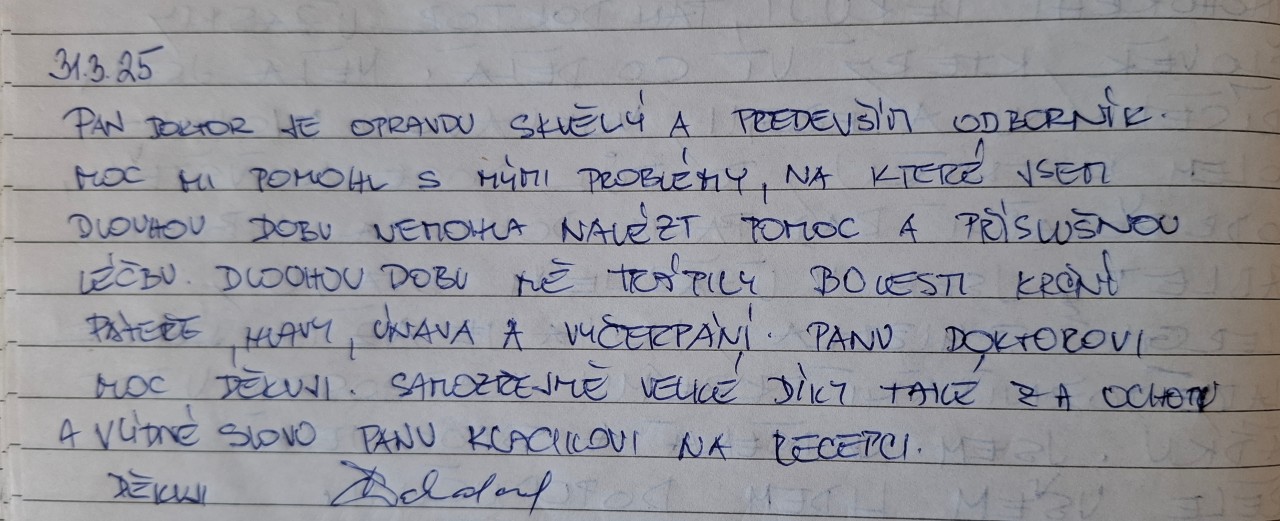 31.3.25
PAN DOKTOR JE OPRAVDU SKVĚLÝ A PŘEDEVŠÍM ODBORNÍK.
MOC MI POMOHL S MÝMI PROBLÉMY, NA KTERÉ JSEM
DLOUHOU DOBU NEMOHLA NALÉZT POMOC A PŘÍSLUŠNOU
LÉČBU. DLOUHOU DOBU MĚ TRÁPILY BOLESTI KRČNÍ
PÁTEŘE, HLAVY, ÚNAVA A VYČERPÁNÍ. PANU DOKTOROVI
MOC DĚKUJI. SAMOZŘEJMĚ VELKÉ DÍKY TAKÉ ZA OCHOTU
A VLÍDNÉ SLOVO PANU KLACIKOVI NA RECEPCI.
DĚKUJI